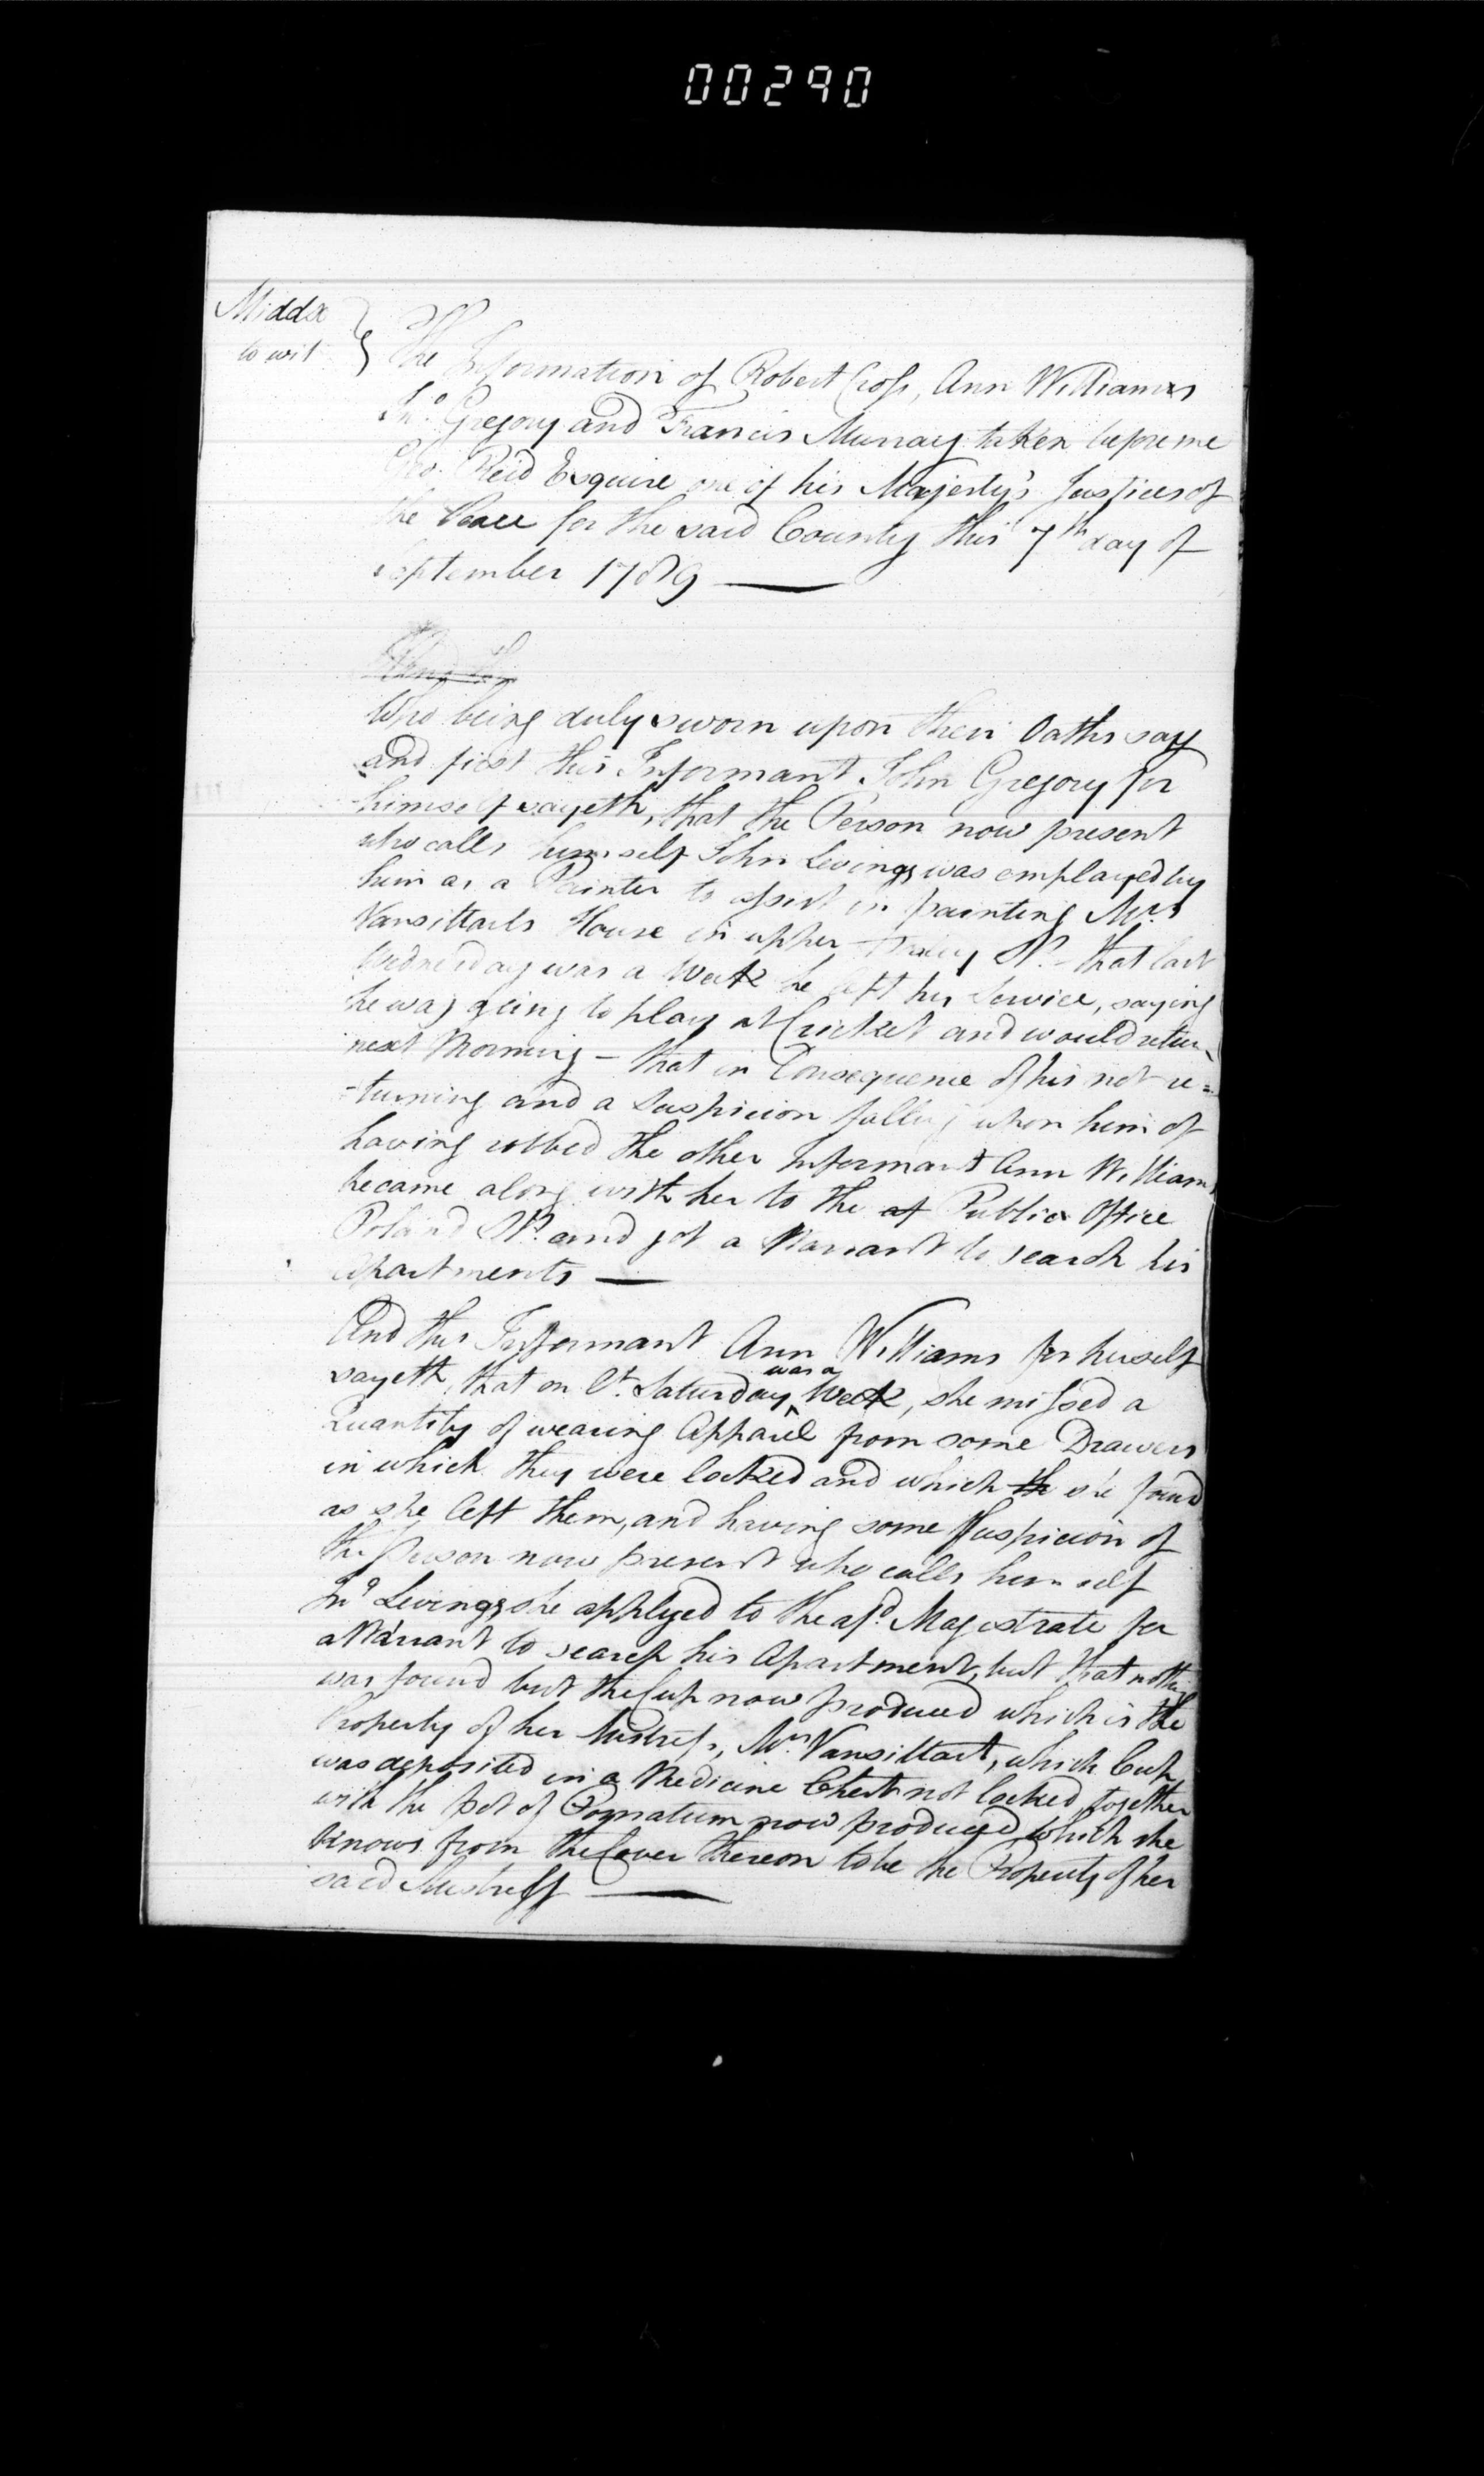 00290
Middx
to wit
The Information of Robert Cross, Ann Williams
Jno. Gregory and Francis Murray taken before me
Geo. Reid Esquire one of his Majesty's Justices of
the Peace for the said County this 7th day of
September 1789
Who being duly sworn upon their Oaths say
and first this Informant John Gregory for
himself sayeth, that the Person now present
who calls himself John Levings was employed by
him as a Painter to assist in painting Mrs
Vansittarts House in upper St. - that last
Wednesday was a Week he left his Service, saying
he was going to play at Cricket and would return
next Morning - that in Consequence of his not re=
-turning and a Suspicion falling upon him of
having robbed the other Informant Ann Williams
he came along with her to the at Public Office
Poland St. and got a Warrant to search his
Apartments
And this Informant Ann Williams for herself
sayeth, that on St. Saturday was a Week, she missed a
Quantity of wearing Apparel from some Drawers
in which they were locked and which th she found
as she left them, and having some Suspicion of
the person now present who calls himself
Jno Levings she applyed to the afd. Magistrate for
a Warrant to search his Apartment, but that nothing
was found but the Cup now produced which is the
Property of her Mistress, Mrs. Vansittart, which Cup
was deposited in a Medicine Chest not locked, together
with the Pot of Pomatum now produced which she
knows from the Cover thereon to be the Property of her
said Mistress